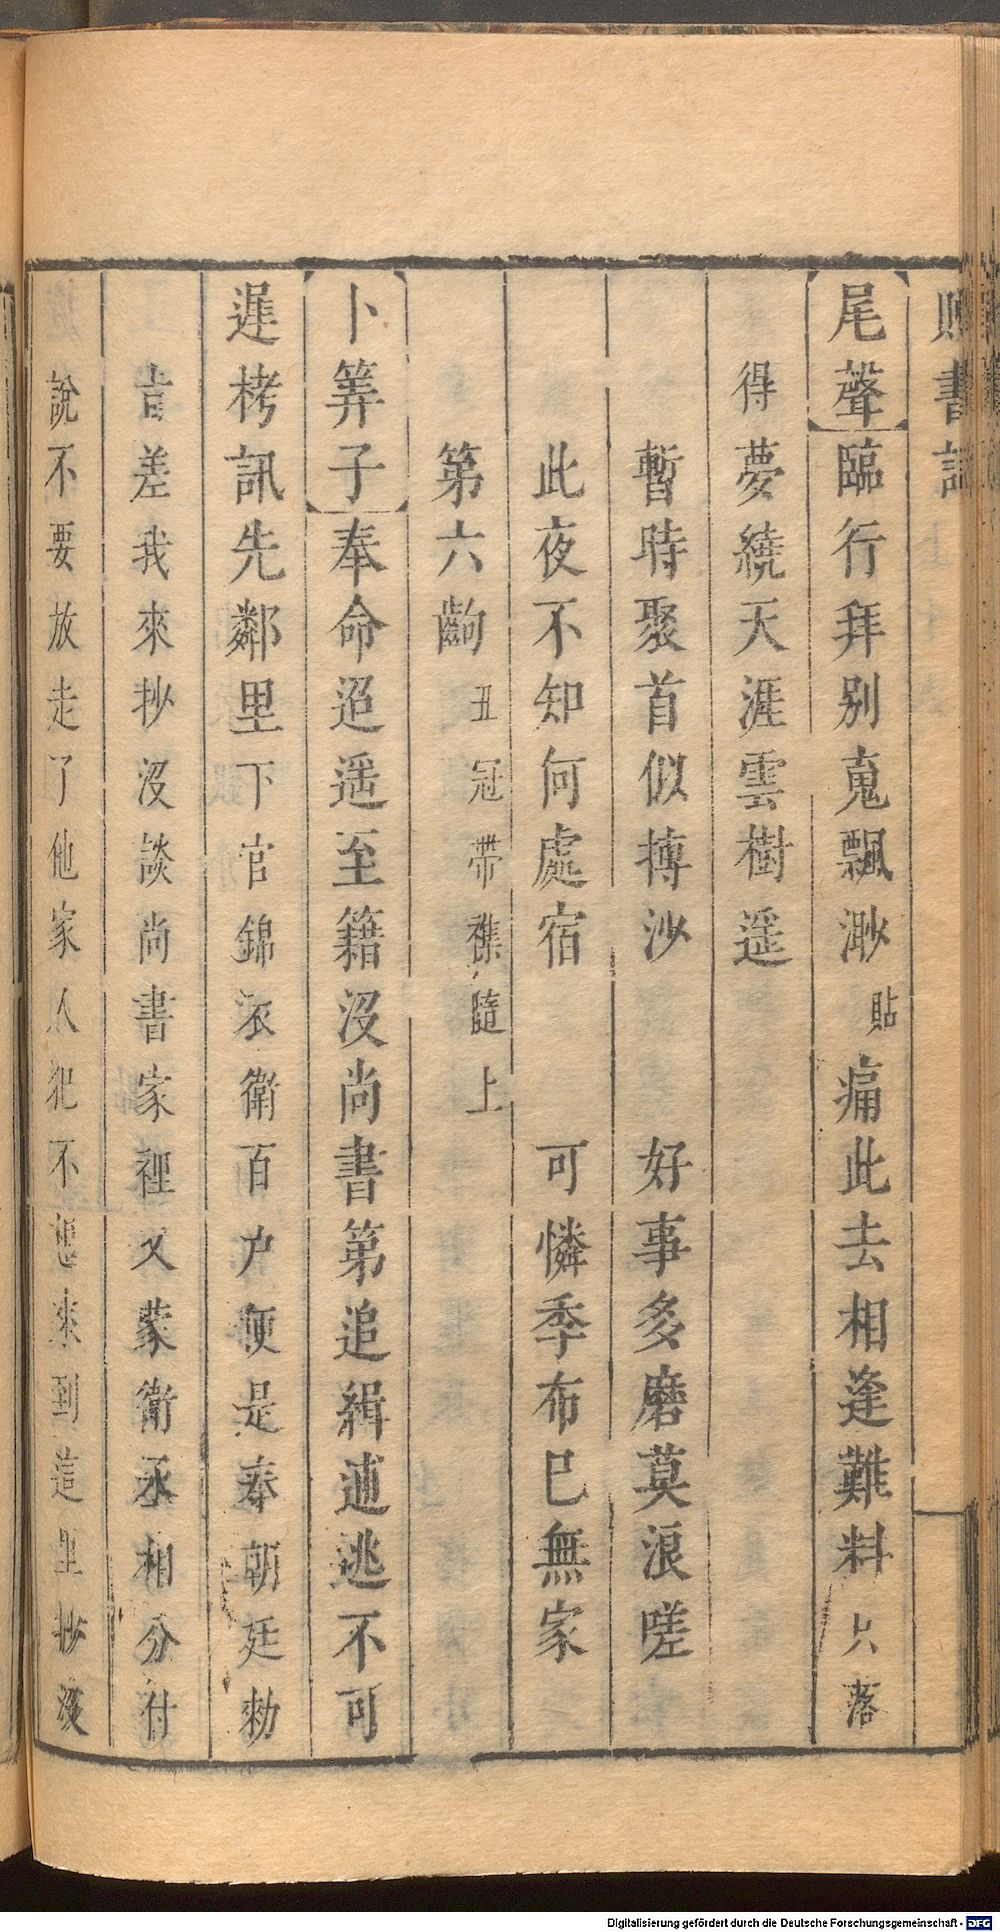 賜書記
尾聲臨行拜别䰟飄渺貼痛此去相逢難料只落
得夢繞天涯雲樹遥
暫時聚首似摶沙　好事多磨莫浪嗟
此夜不知何處宿　可憐季布已無家
第六齣丑冠帶襍隨上
卜筭子奉命迢遥至籍沒尚書第追緝逋逃不可
遲栲訊先鄰里下官錦衣衛百户便是奉朝廷勑
旨差我來抄沒談尚書家裡又蒙衛丞相分付
說不要放走了他家人犯不想來到這里抄沒
Digitalisierung gefördert durch die Deutsche Forschungsgemeinschaft - DFG